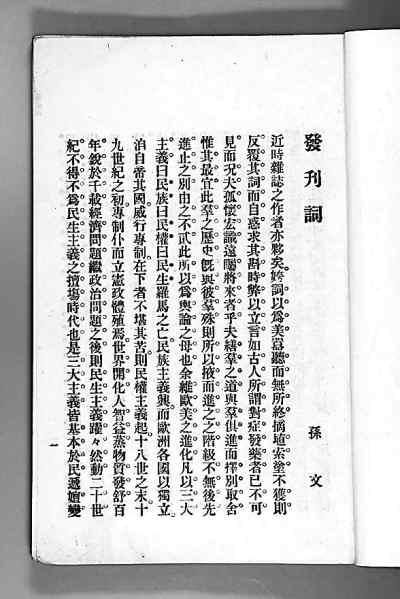 發刊詞
孫文
近時雜誌之作者亦夥矣。姱詞以爲美。囂聽而無所終。摘埴索塗不獲。則
反覆其詞而自惑。求其斟時弊以立言。如古人所謂對症發藥者。已不可
見。而況夫孤懷宏識。遠矚將來者乎。夫繕羣之道。與羣俱進。而擇別取舍。
惟其最宜。此羣之歷史。旣與彼羣殊。則所以掖而進之之階級。不無後先
進止之別。由之不貳。此所以爲輿論之母也。余維歐美之進化。凡以三大
主義。曰民族。曰民權。曰民生。羅馬之亡。民族主義興。而歐洲各國以獨立。
洎自帝其國。威行專制。在下者不堪其苦。則民權主義起。十八世之末。十
九世紀之初。專制仆而立憲政體殖焉。世界開化。人智益蒸。物質發舒。百
年銳於千載。經濟問題繼政治問題之後。則民生主義躍々然動。二十世
紀不得不爲民生主義之擅塲時代也。是三大主義皆基本於民。遞嬗變
一